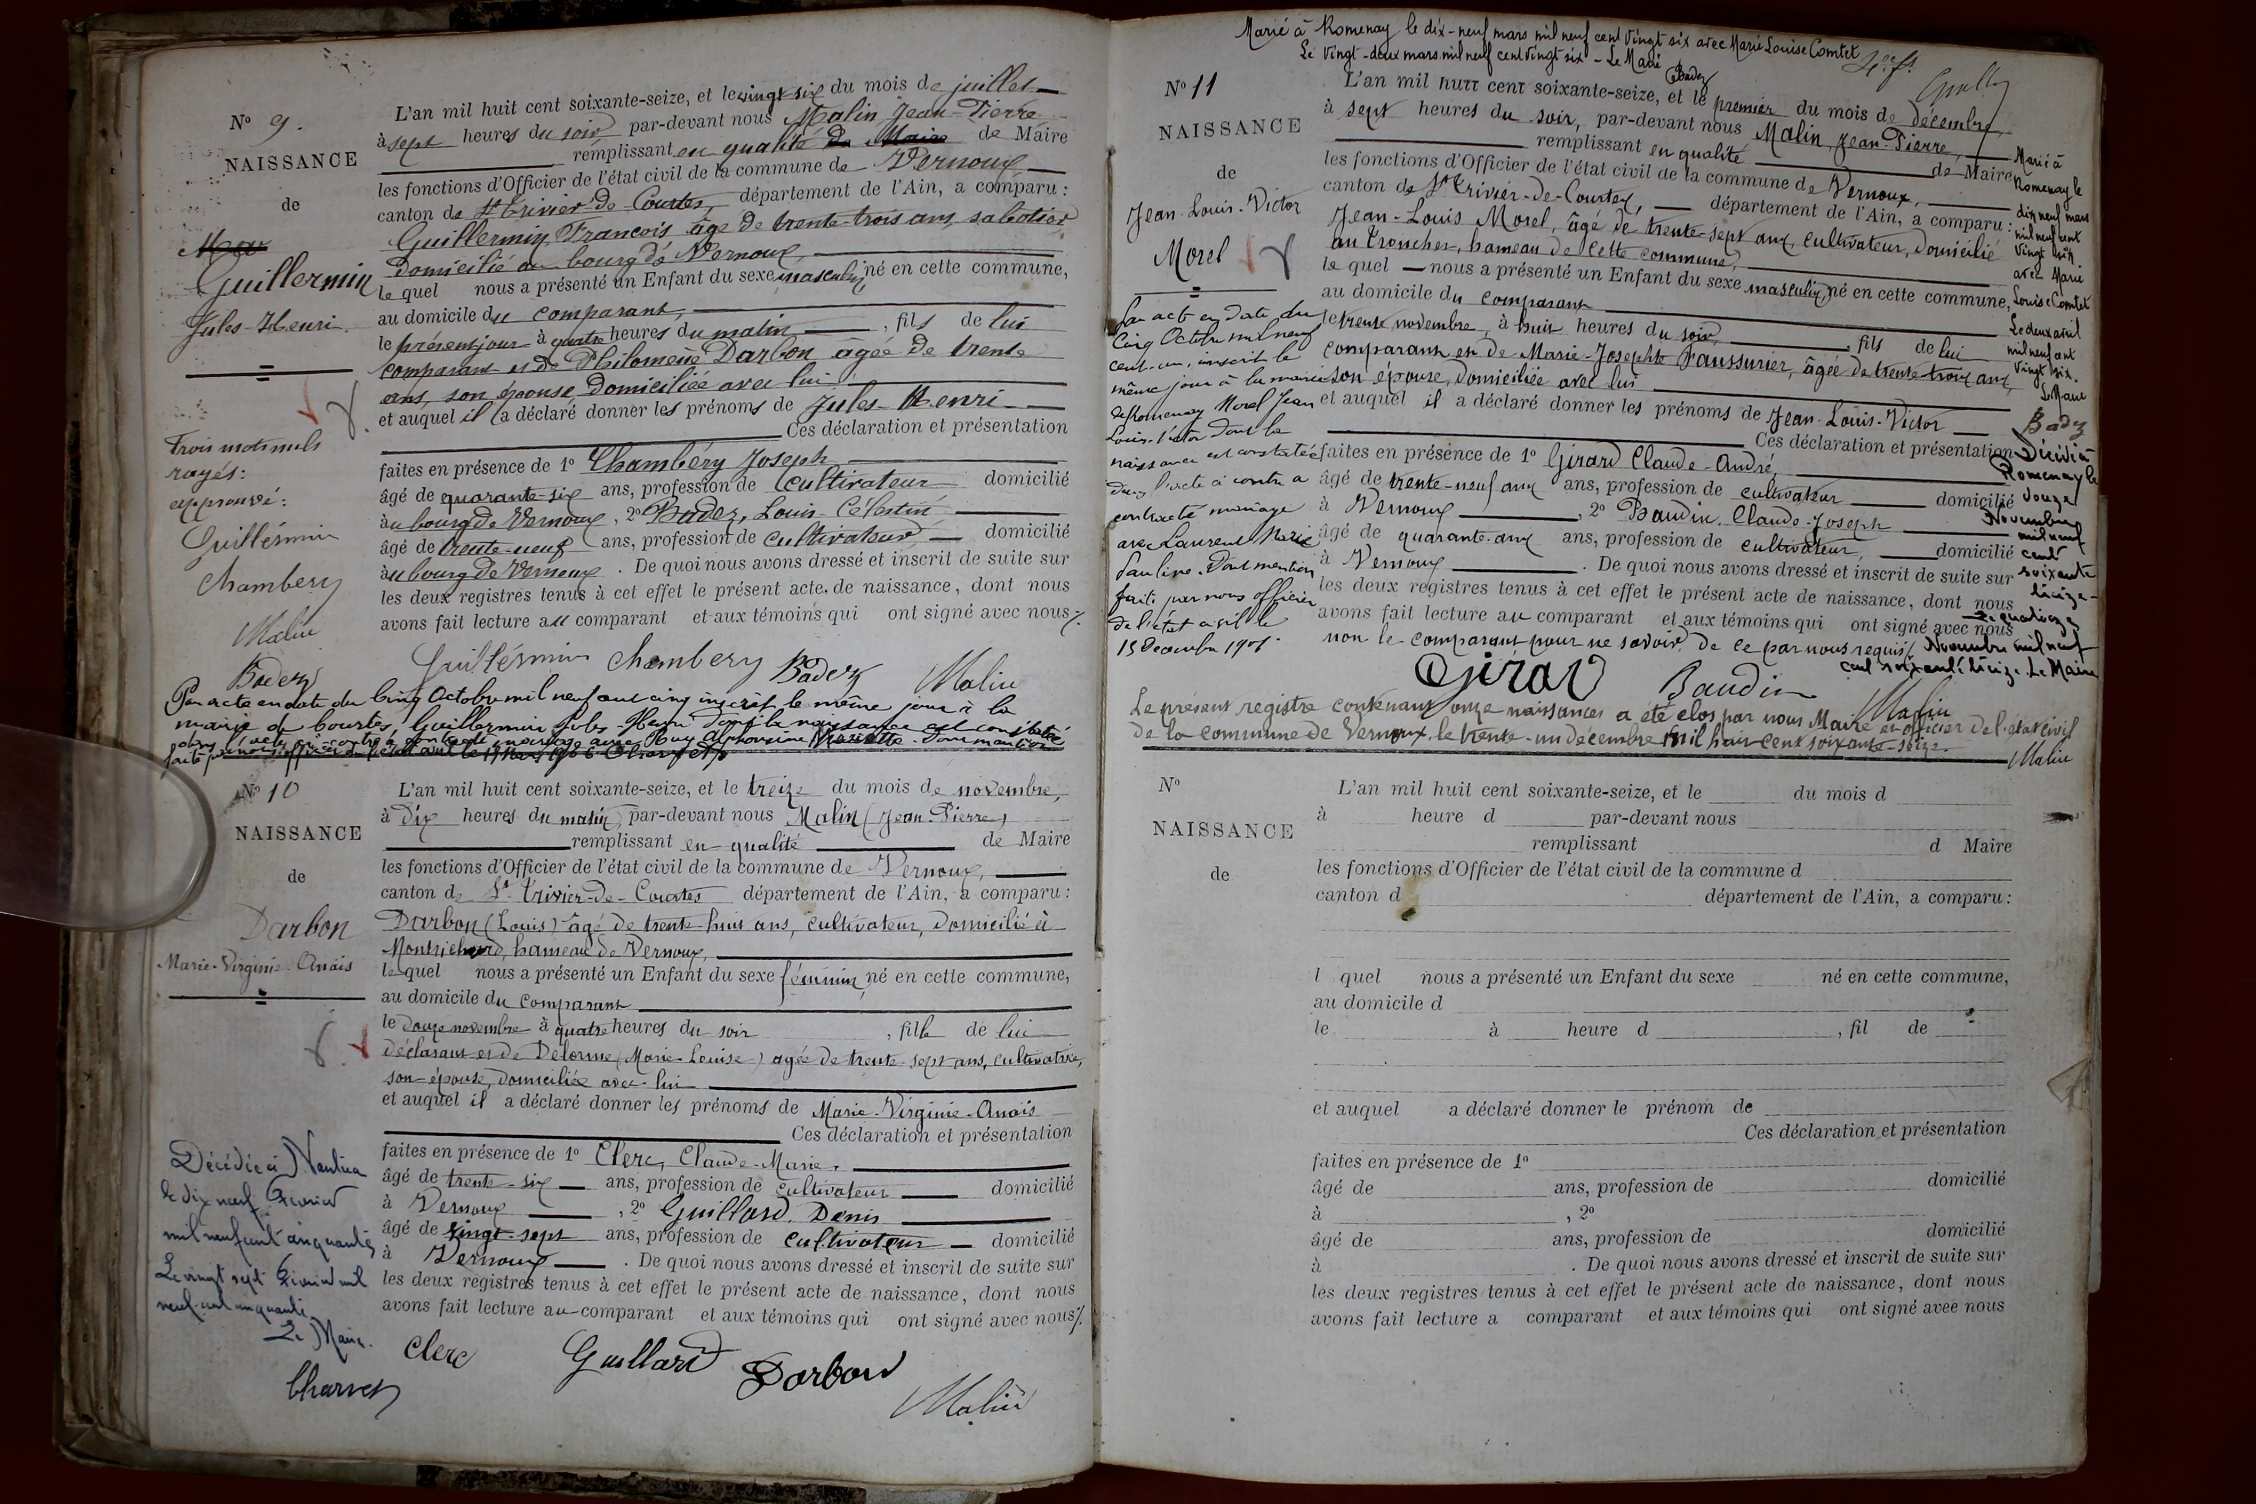 N° 9.
NAISSANCE
de
Guillermin
Jules-Henri
Trois mots nuls
rayés:
approuvé:
Guillermin
Chambery
Malin
Badez
L'an mil huit cent soixante-seize, et le vingt-six du mois de juillet
à sept heures du soir par-devant nous Malin Jean-Pierre
remplissant en qualité de Maire de Maire
les fonctions d'Officier de l'état civil de la commune de Vernoux
canton de St Trivier-de-Courtes, département de l'Ain, a comparu:
Guillermin, François âgé de trente-trois ans, sabotier
domicilié au bourg de Vernoux,
lequel nous a présenté un Enfant du sexe masculin, né en cette commune,
au domicile du comparant,
le présent jour à quatre heures du matin, fils de lui
comparant et de Philomène Darbon âgée de trente
ans, son épouse, domiciliée avec lui
et auquel il a déclaré donner les prénoms de Jules-Henri
Ces déclaration et présentation
faites en présence de 1° Chambéry Joseph
âgé de quarante-six ans, profession de cultivateur domicilié
au bourg de Vernoux, 2° Badez, Louis-Célestin
âgé de trente-neuf ans, profession de cultivateur domicilié
au bourg de Vernoux. De quoi nous avons dressé et inscrit de suite sur
les deux registres tenus à cet effet le présent acte de naissance, dont nous
avons fait lecture au comparant et aux témoins qui ont signé avec nous
Guillermin Chambery Badez Malin
Par acte en date du cinq Octobre mil neuf cent cinq inscrit le même jour à la
mairie de Courtes, Guillermin Jules Henri dont la naissance est constatée
dans l'acte ci-contre a contracté mariage avec Alphonsine Mariette. Dont mention
N° 10
NAISSANCE
de
Darbon
Marie-Virginie-Anaïs
Décédée à Nantua
le dix neuf Février
mil neuf cent cinquante
Le vingt sept Février mil
neuf cent cinquante
Le Maire.
Charvet
L'an mil huit cent soixante-seize, et le treize du mois de novembre,
à dix heures du matin par-devant nous Malin (Jean-Pierre)
remplissant en qualité de Maire
les fonctions d'Officier de l'état civil de la commune de Vernoux,
canton de St Trivier-de-Courtes département de l'Ain, a comparu:
Darbon (Louis) âgé de trente-huit ans, cultivateur, domicilié à
Montrichard, hameau de Vernoux,
lequel nous a présenté un Enfant du sexe féminin, né en cette commune,
au domicile du comparant
le douze novembre à quatre heures du soir, fille de lui
déclarant et de Delorme (Marie-Louise) agée de trente-sept ans, cultivatrice,
son épouse, domiciliée avec lui
et auquel il a déclaré donner les prénoms de Marie-Virginie-Anaïs
Ces déclaration et présentation
faites en présence de 1° Clerc, Claude-Marie,
âgé de trente-six ans, profession de cultivateur domicilié
à Vernoux, 2° Guillard, Denis
âgé de vingt-sept ans, profession de cultivateur domicilié
à Vernoux. De quoi nous avons dressé et inscrit de suite sur
les deux registres tenus à cet effet le présent acte de naissance, dont nous
avons fait lecture au comparant et aux témoins qui ont signé avec nous
Clerc Guillard Darbon
Malin
Marié à Romenay le dix-neuf mars mil neuf cent vingt six avec Marie Louise Comtet
Le vingt-deux mars mil neuf cent vingt six - Le Maire
Badez
N° 11
NAISSANCE
de
Jean-Louis-Victor
Morel
Par acte en date du
cinq Octobre mil neuf
cent un, inscrit le
même jour à la mairie
de Romenay Morel Jean
Louis Victor dont la
naissance est constatée
dans l'acte ci contre a
contracté mariage
avec Laurent Marie
Pauline. Dont mention
faite par nous officier
de l'état civil le
15 Décembre 1901.
L'an mil huit cent soixante-seize, et le premier du mois de décembre,
à sept heures du soir, par-devant nous Malin, Jean-Pierre,
remplissant en qualité de Maire
les fonctions d'Officier de l'état civil de la commune de Vernoux,
canton de St Trivier-de-Courtes, département de l'Ain, a comparu:
Jean-Louis Morel, âgé de trente-sept ans, cultivateur, domicilié
au Tronches, hameau de cette commune,
lequel nous a présenté un Enfant du sexe masculin, né en cette commune,
au domicile du comparant
le trente novembre, à huit heures du soir, fils de lui
comparant et de Marie-Josephte Faussurier, âgée de trente-trois ans,
son épouse, domiciliée avec lui
et auquel il a déclaré donner les prénoms de Jean-Louis-Victor
Ces déclaration et présentation
faites en présence de 1° Girard Claude-André,
âgé de trente-neuf ans ans, profession de cultivateur domicilié
à Vernoux, 2° Baudin, Claude-Joseph
âgé de quarante-ans ans, profession de cultivateur, domicilié
à Vernoux. De quoi nous avons dressé et inscrit de suite sur
les deux registres tenus à cet effet le présent acte de naissance, dont nous
avons fait lecture au comparant et aux témoins qui ont signé avec nous
non le comparant pour ne savoir de ce par nous requis
Girard Baudin Malin
Marié à
Romenay le
dix neuf mars
mil neuf cent
vingt six
avec Marie
Louise Comtet
Le deux avril
mil neuf cent
vingt six.
Le Maire
Badez
Décédé à
Romenay le
douze
Novembre
mil neuf
cent
soixante
treize-
Le quatorze
Novembre mil neuf
cent soixante treize. Le Maire
Le présent registre contenant onze naissances a été clos par nous Maire et officier de l'état civil
de la commune de Vernoux, le trente-un décembre mil huit cent soixante-seize.
Malin
N°
NAISSANCE
de
L'an mil huit cent soixante-seize, et le du mois d
à heure d par-devant nous
remplissant d Maire
les fonctions d'Officier de l'état civil de la commune d
canton d département de l'Ain, a comparu:
l quel nous a présenté un Enfant du sexe né en cette commune,
au domicile d
le à heure d , fil de
et auquel a déclaré donner le prénom de
Ces déclaration et présentation
faites en présence de 1°
âgé de ans, profession de domicilié
à , 2°
âgé de ans, profession de domicilié
à . De quoi nous avons dressé et inscrit de suite sur
les deux registres tenus à cet effet le présent acte de naissance, dont nous
avons fait lecture a comparant et aux témoins qui ont signé avec nous